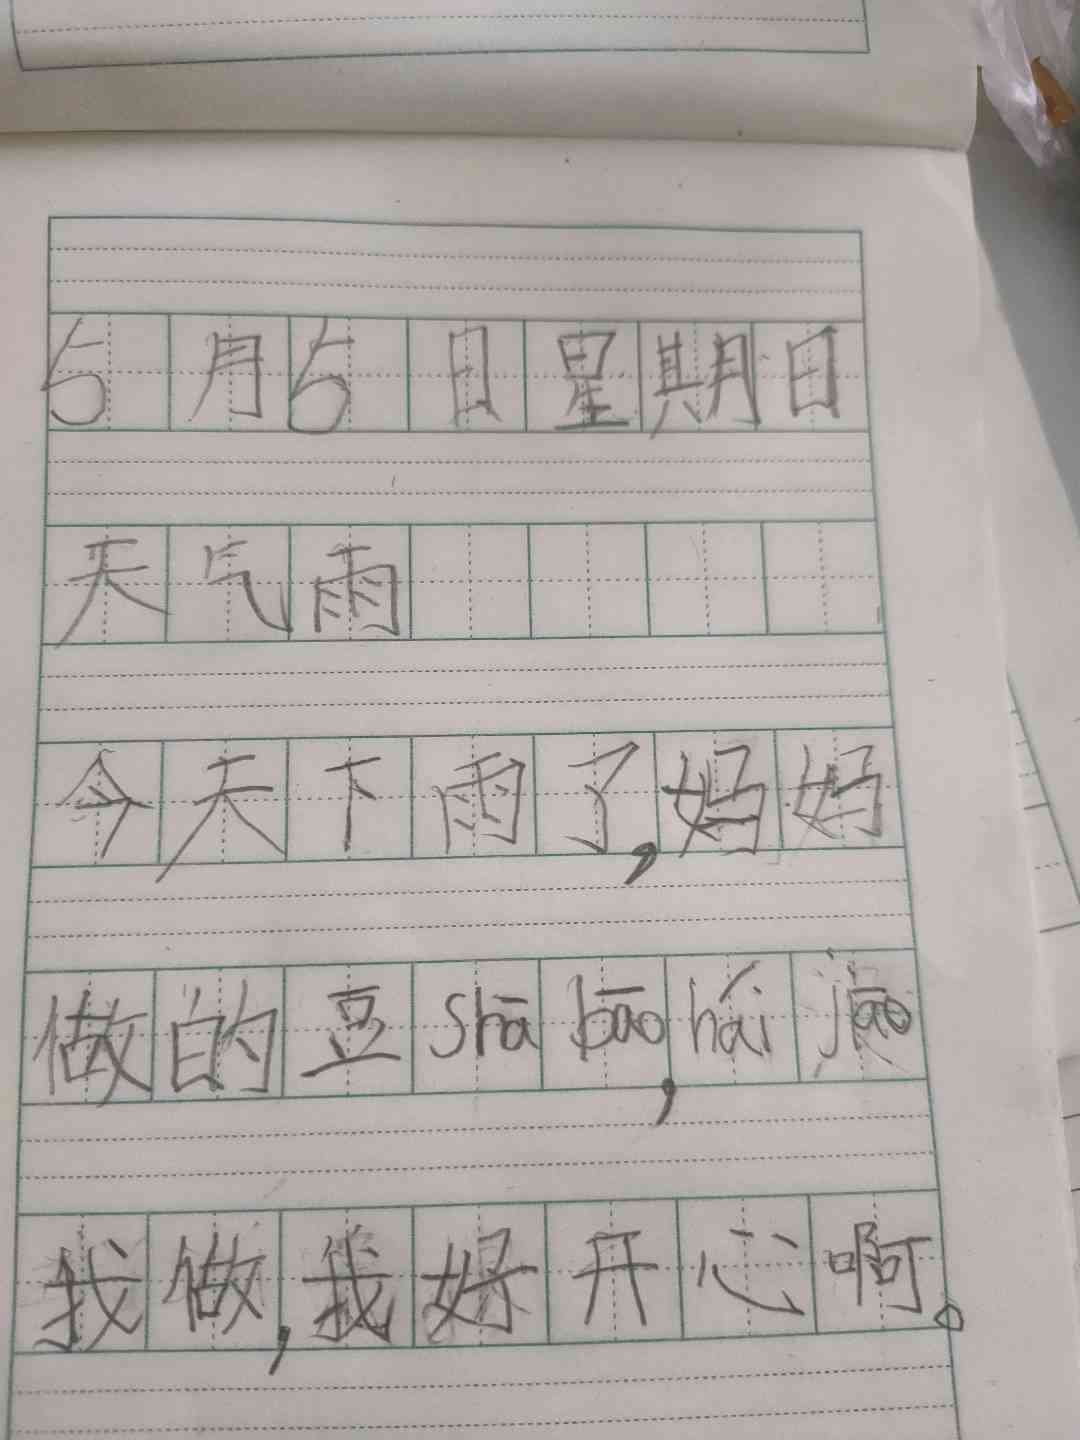 5月5日星期日
天气雨
今天下雨了,妈妈
做的豆shābāo,háijāo
我做,我好开心啊。